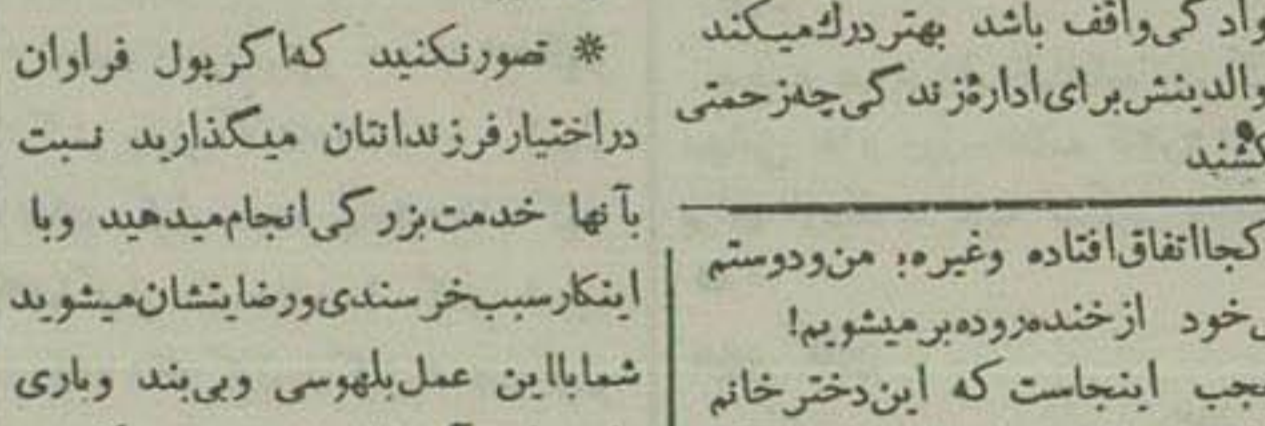 واقف باشد بهتر درك میکند
والدینش برای ادارهٔ زندگی چه زحمتی
کجا اتفاق افتاده وغیره، من و دوستم
خود از خنده روده بر میشویم!
اینجاست که این دختر خانم
* تصور نکنید که اگر پول فراوان
در اختیار فرزندانتان میگذارید نسبت
بآنها خدمت بزرگی انجام میدهید وبا
اینکار سبب خرسندی ورضایتشان میشوید
شما بااین عمل بلهوسی وبی بند وباری